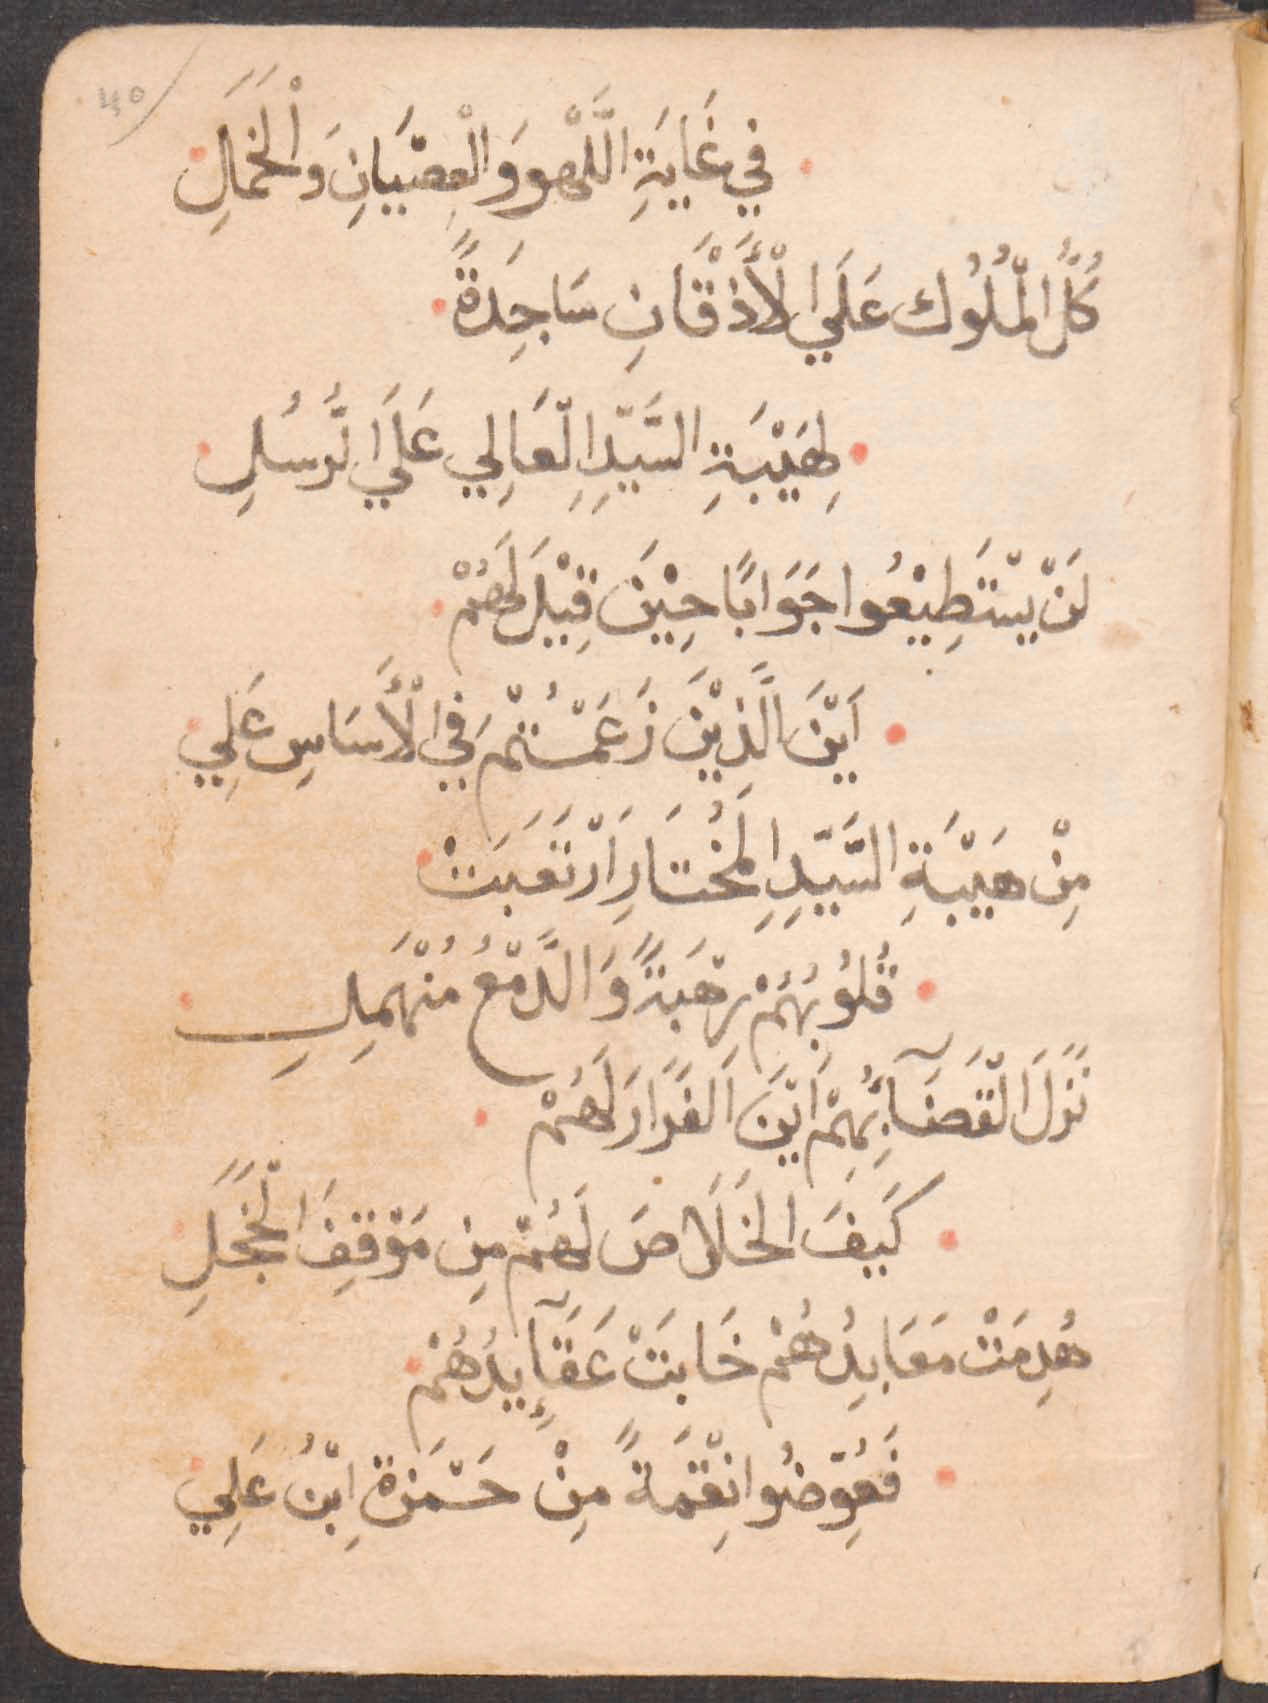 40
في غَايَةِ اللَّهْوِ وَالْعِصْيَانِ وَالْخَمَلِ
كُلُّ الْمُلُوْكِ عَلَي الْأَذْقَانِ سَاجِدَةً
لِهَيْبَةِ السَّيِّدِ الْعَالِي عَلَي الرُّسُلِ
لَنْ يَسْتَطِيْعُوا جَوَابًا حِيْنَ قِيْلَ لَهُمْ
اَيْنَ الَّذِيْنَ زَعَمْتُمْ فِي الْأَسَاسِ عَلِي
مِنْ هَيْبَةِ السَّيِّدِ الْمُخْتَارِ اَرْتَعَبَتْ
قُلُوْبُهُمْ رَهْبَةً وَالدَّمْعُ مُنْهَمِلِ
نَزَلَ الْقَضَآ بِهِمْ اَيْنَ الفَرَارَ لَهُمْ
كَيْفَ الخَلَاصَ لَهُمْ مِن مَوْقِفِ الْخَجَلِ
هُدِمَتْ مَعَابِدُهُمْ خَابَتْ عَقَآيِدُهُمْ
فَعُوِّضُوا نِقْمَةً مِنْ حَمْزَةِ ابْنُ عَلِي